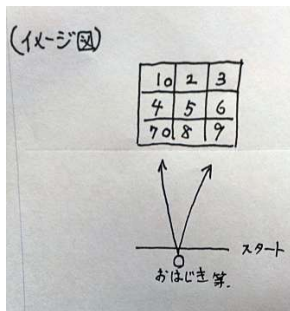 (イメージ図)
10 2 3
4 5 6
70 8 9
スタート
おはじき等.